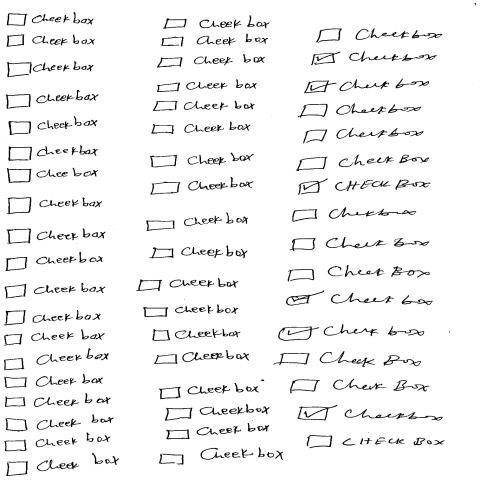 Checkbox
Check box
Checkbox
Checkbox
Checkbox
Checkbox
Checkbox
Checkbox
Checkbox
Check box
Checkbox
Checkbox
Check box
Check box
Check box
Check box
Check box
Check box
Check box
Check box
Check box
Check box
Check box
Check box
Check box
Check box
Checkbox
Check box
Checkbox
Checkbox
Checkbox
Checkbox
Checkbox
Checkbox
Checkbox
Check box
Check box
Checkbox
Checkbox
Check box
Checkbox
Checkbox
Check Box
CHECK Box
Checkbox
Check Box
Check Box
Check box
Check box
Check Box
Check Box
Checkbox
CHECK Box